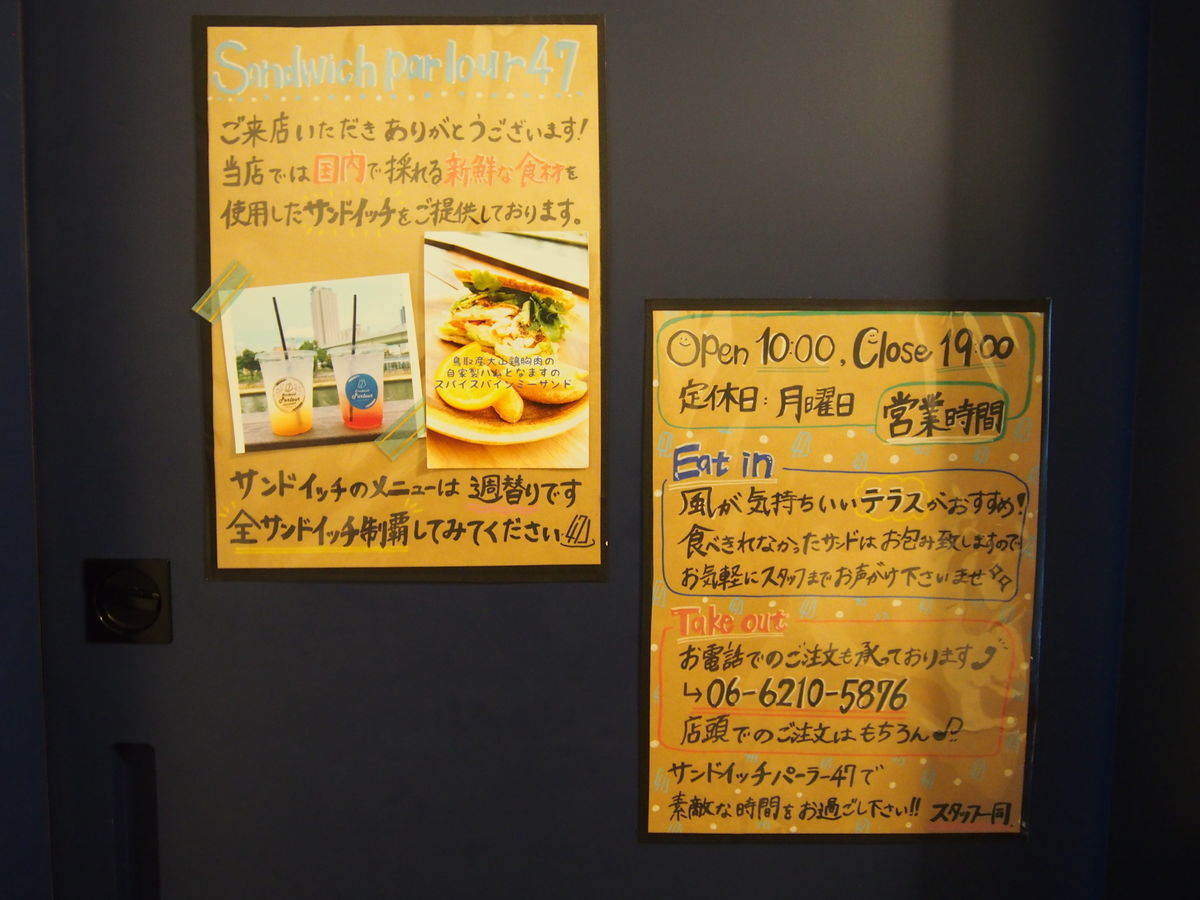 Sandwich parlour 47
ご来店いただきありがとうございます!
当店では国内で採れる新鮮な食材を
使用したサンドイッチをご提供しております。
鳥取産大山鶏胸肉の
自家製ハムとなますの
スパイスバインミーサンド
Parlour
Parlour
サンドイッチのメニューは週替りです
全サンドイッチ制覇してみてください
47
Open 10:00, Close 19:00
定休日:月曜日
営業時間
Eat in
風が気持ちいいテラスがおすすめ!
食べきれなかったサンドはお包み致しますので
お気軽にスタッフまでお声がけ下さいませ
Take out
お電話でのご注文も承っております♪
↳06-6210-5876
店頭でのご注文はもちろん♪!!
サンドイッチパーラー47で
素敵な時間をお過ごし下さい!! スタッフ一同.